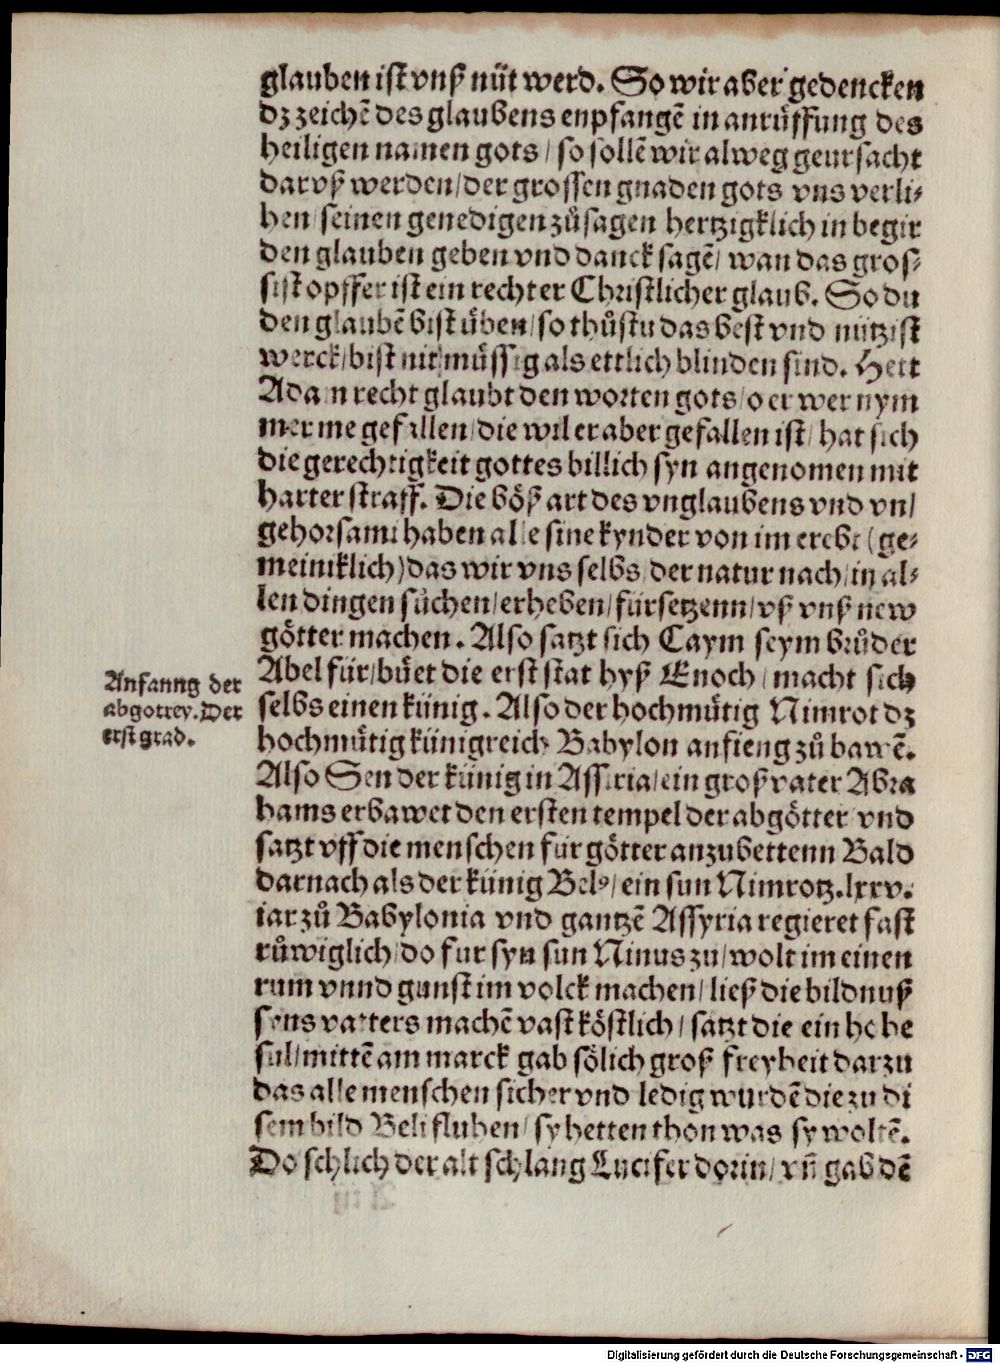 glauben ist vnß nüt werd. So wir aber gedencken
dz zeichē des glaubens enpfangē in anrůffung des
heiligen namen gots / so sollē wir alweg geursacht
darvß werden / der grossen gnaden gots vns verli⸗
hen / seinen genedigen zůsagen hertzigklich in begir
den glauben geben vnd danck sagē / wan das gros⸗
sist opffer ist ein rechter Christlicher glaub. So du
den glaubē bist üben / so thůstu das best vnd nützist
werck / bist nit müssig als ettlich blinden sind. Hett
Adam recht glaubt den worten gots / o er wer nym
mer me gefallen / die wil er aber gefallen ist / hat sich
die gerechtigkeit gottes billich syn angenomen mit
harter straff. Die böß art des vnglaubens vnd vn /
gehorsam haben alle sine kynder von im erebt ( ge⸗
meiniklich ) das wir vns selbs / der natur nach / in al⸗
len dingen sůchen / erheben / fürsetzenn / vß vnß new
götter machen. Also satzt sich Caym seym brůder
Abel für / buet die erst stat hyß Enoch / macht sich
selbs einen künig. Also der hochmütig Nimrot dz
hochmütig künigreich Babylon anfieng zů bawē.
Also Sen der künig in Assiria / ein groß vater Abra
hams erbawet den ersten tempel der abgötter / vnd
satzt vff die menschen für götter anzubettenn Bald
darnach als der künig Belꝰ / ein sun Nimrotz. lxxv.
iar zů Babylonia vnd gantzē Assyria regieret fast
růwiglich / do fur syn sun Ninus zu / wolt im einen
rum vnnd gunst im volck machen / ließ die bildnuß
syns vatters machē vast köstlich / satzt die ein hohe
sul / mittē am marck gab sölich groß freyheit darzu
das alle menschen sicher vnd ledig wurdē die zu di
sem bild Beli fluhen / sy hetten thon was sy woltē.
Do schlich der alt schlang Lucifer dorin / vn̄ gab dē
Anfanng der
abgottrey. Der
erst grad.
Digitalisierung gefördert durch die Deutsche Forschungsgemeinschaft - DFG